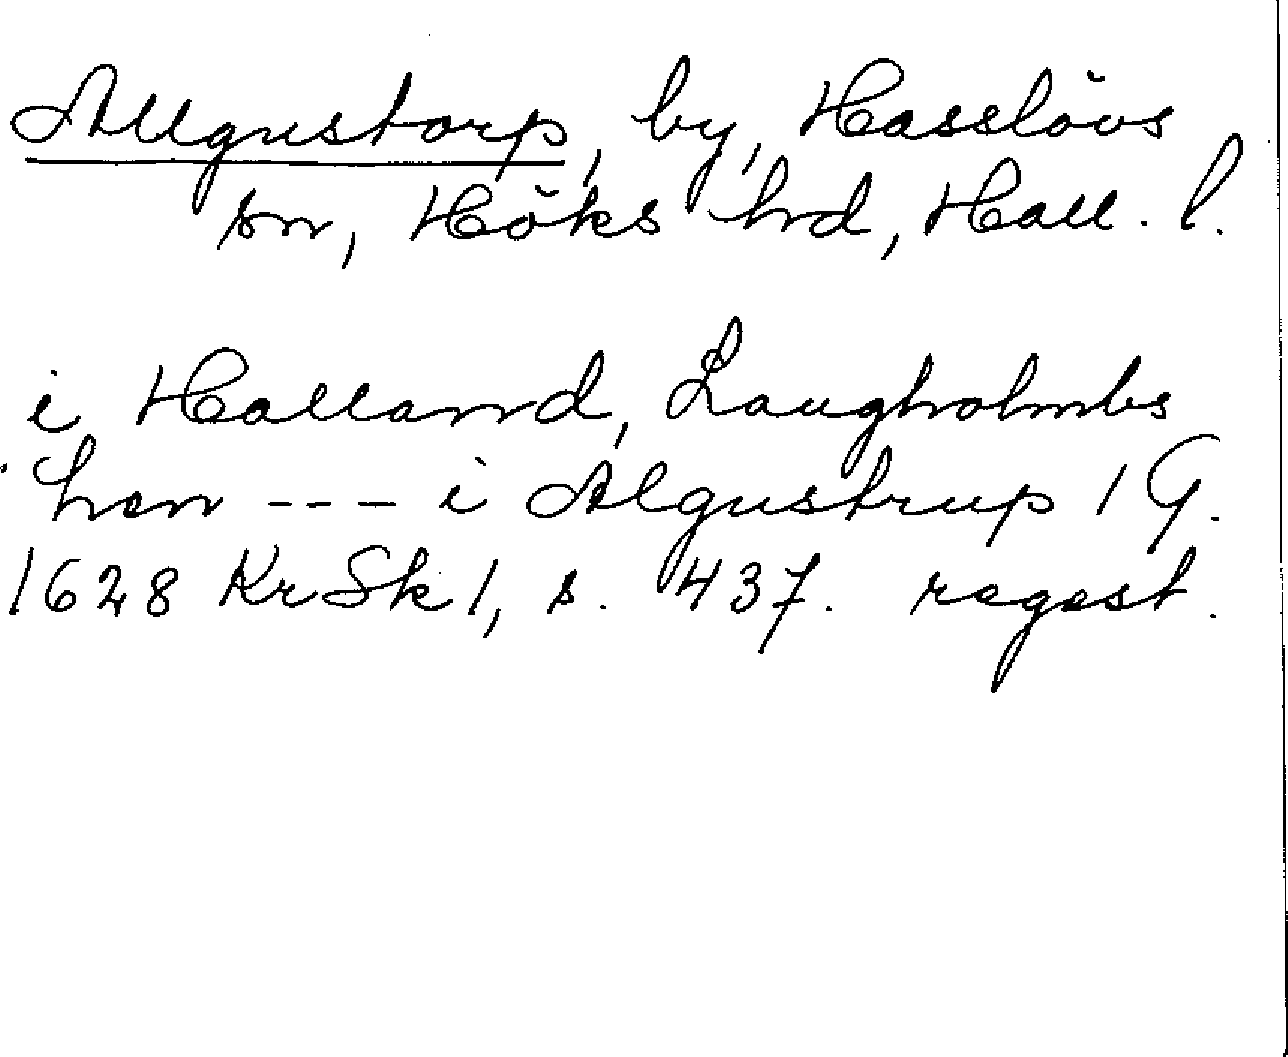 Allgustorp, by, Hasslövs
sn, Höks hrd, Hall. l.
i Halland, Laugholmbs
hen --- i Algustrup 1 G.
1628 KrSk 1, s. 437. regest.